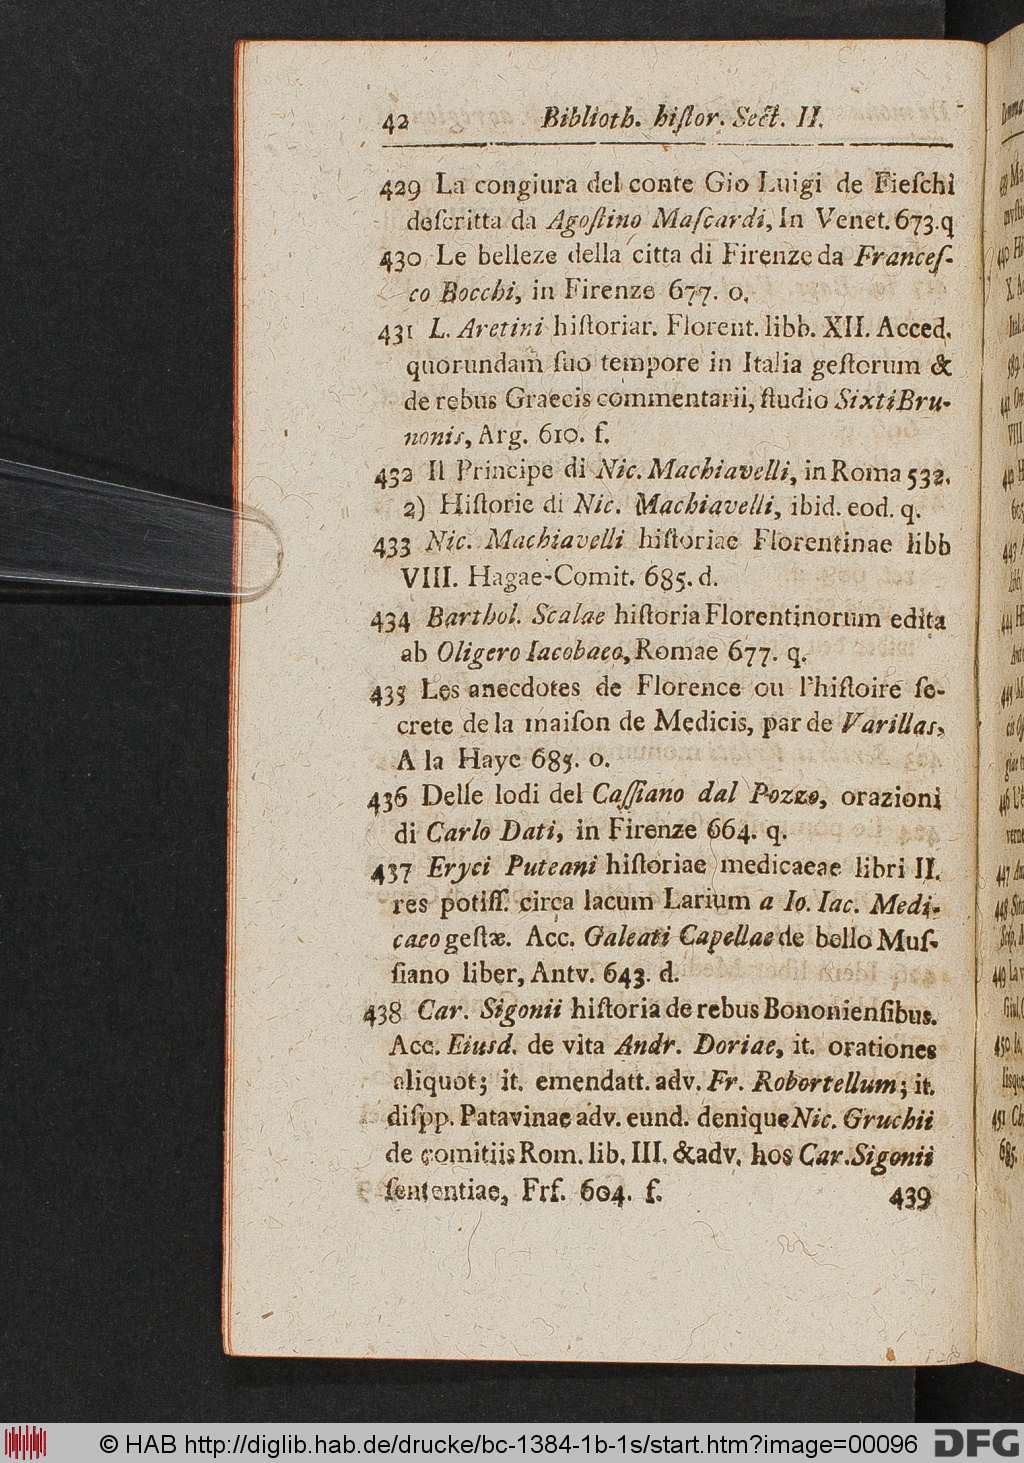 42 Biblioth. hiſtor. Sect. II.
429 La congiura del conte Gio Luigi de Fieſchi
deſcritta da Agoſtino Maſcardi, In Venet. 673. q
430 Le belleze della citta di Firenze da Franceſ-
co Bocchi, in Firenze 677. o.
431 L. Aretini hiſtoriar. Florent. libb. XII. Acced.
quorundam ſuo tempore in Italia geſtorum &
de rebus Graecis commentarii, ſtudio Sixti Bru-
nonis, Arg. 610. f.
432 Il Principe di Nic. Machiavelli, in Roma 532.
2) Hiſtorie di Nic. Machiavelli, ibid. eod. q.
433 Nic. Machiavelli hiſtoriae Florentinae libb
VIII. Hagae-Comit. 685. d.
434 Barthol. Scalae hiſtoria Florentinorum edita
ab Oligero Iacobaeo, Romae 677. q.
435 Les anecdotes de Florence ou l'hiſtoire ſe-
crete de la maiſon de Medicis, par de Varillas,
A la Haye 685. o.
436 Delle lodi del Caſſiano dal Pozzo, orazioni
di Carlo Dati, in Firenze 664. q.
437 Eryci Puteani hiſtoriae medicaeae libri II.
res potiſſ. circa lacum Larium a Io. Iac. Medi-
caeo geſtæ. Acc. Galeati Capellae de bello Muſ-
ſiano liber, Antv. 643. d.
438 Car. Sigonii hiſtoria de rebus Bononienſibus.
Acc. Eiusd. de vita Andr. Doriae, it. orationes
aliquot; it. emendatt. adv. Fr. Robortellum; it.
diſpp. Patavinae adv. eund. denique Nic. Gruchii
de comitiis Rom. lib. III. & adv. hos Car. Sigonii
ſententiae, Frf. 604. f.
439
© HAB http://diglib.hab.de/drucke/bc-1384-1b-1s/start.htm?image=00096 DFG